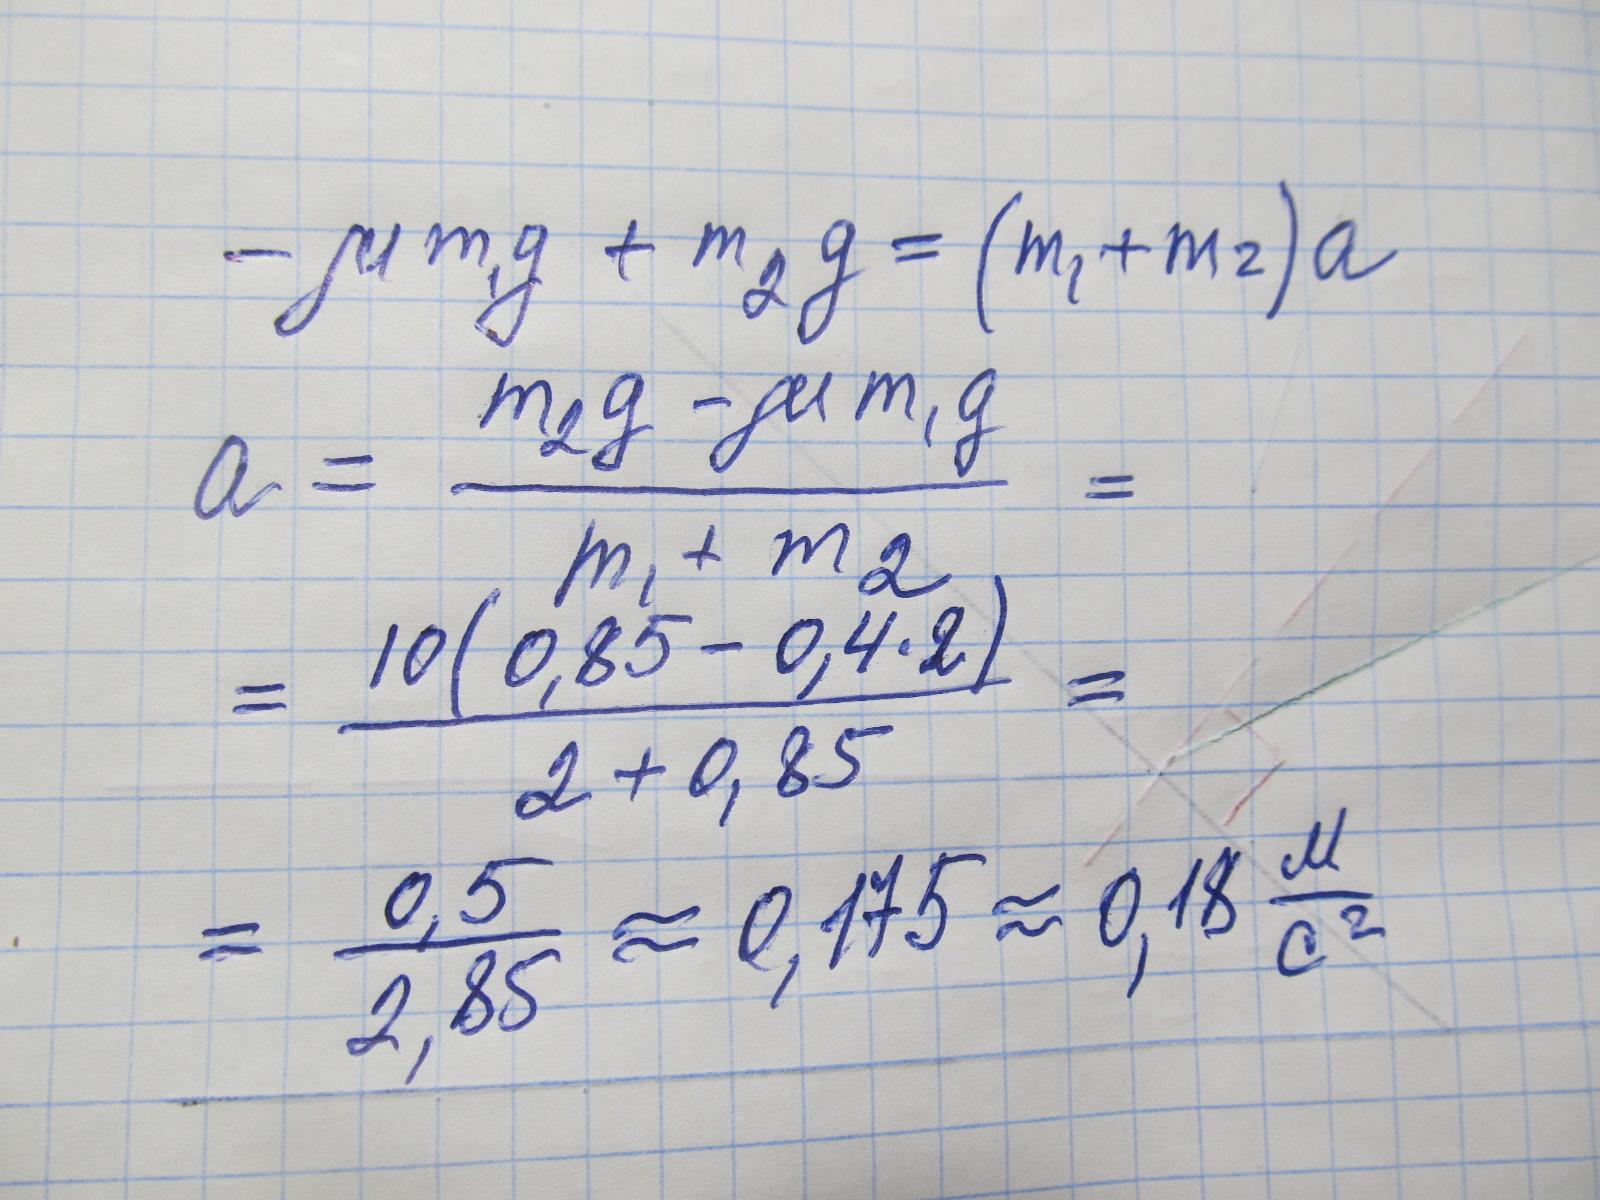 - μ m₁g + m₂g = (m₁ + m₂)a
a = (m₂g - μ m₁g) / (m₁ + m₂) =
= 10(0,85 - 0,4·2) / (2 + 0,85) =
= 0,5 / 2,85 ≈ 0,175 ≈ 0,18 м/с²